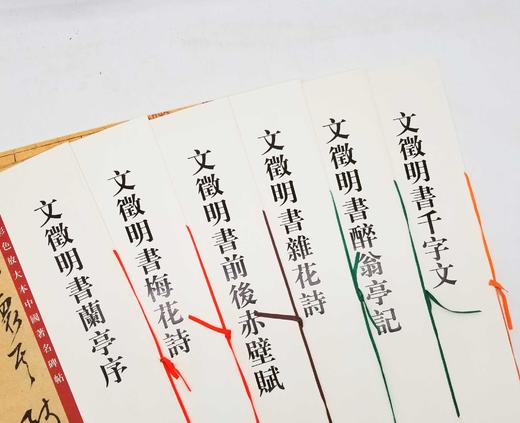 文徵明書千字文
文徵明書醉翁亭記
文徵明書雜花詩
文徵明書前後赤壁賦
文徵明書梅花詩
文徵明書蘭亭序
彩色放大本中國著名碑帖